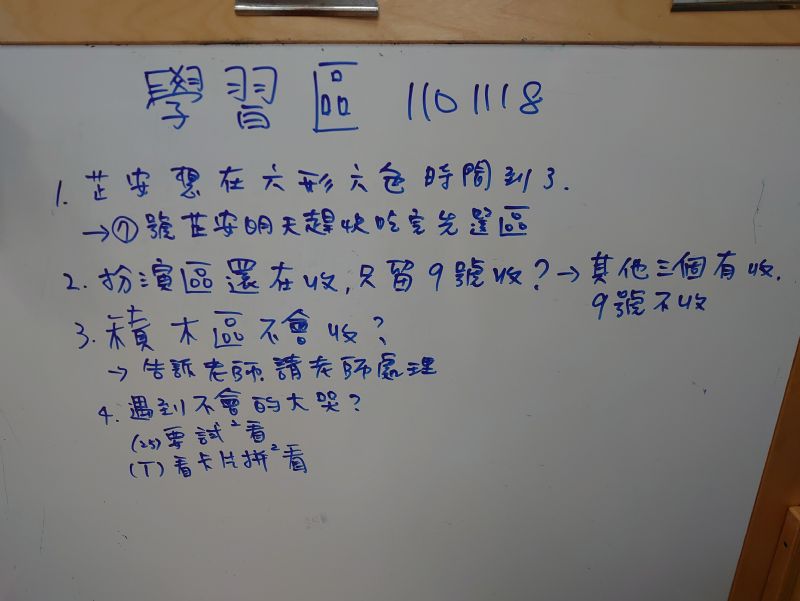 學習區 1101118
1. 芷安想在六形六色時間到了.
→⑦號芷安明天趕快吃完先選區
2. 扮演區還在收,只留9號收?→其他三個有收.
9號不收
3. 積木區不會收?
→告訴老師.請老師處理
4. 遇到不會的大哭?
(25)要試²看
(T)看卡片拼²看